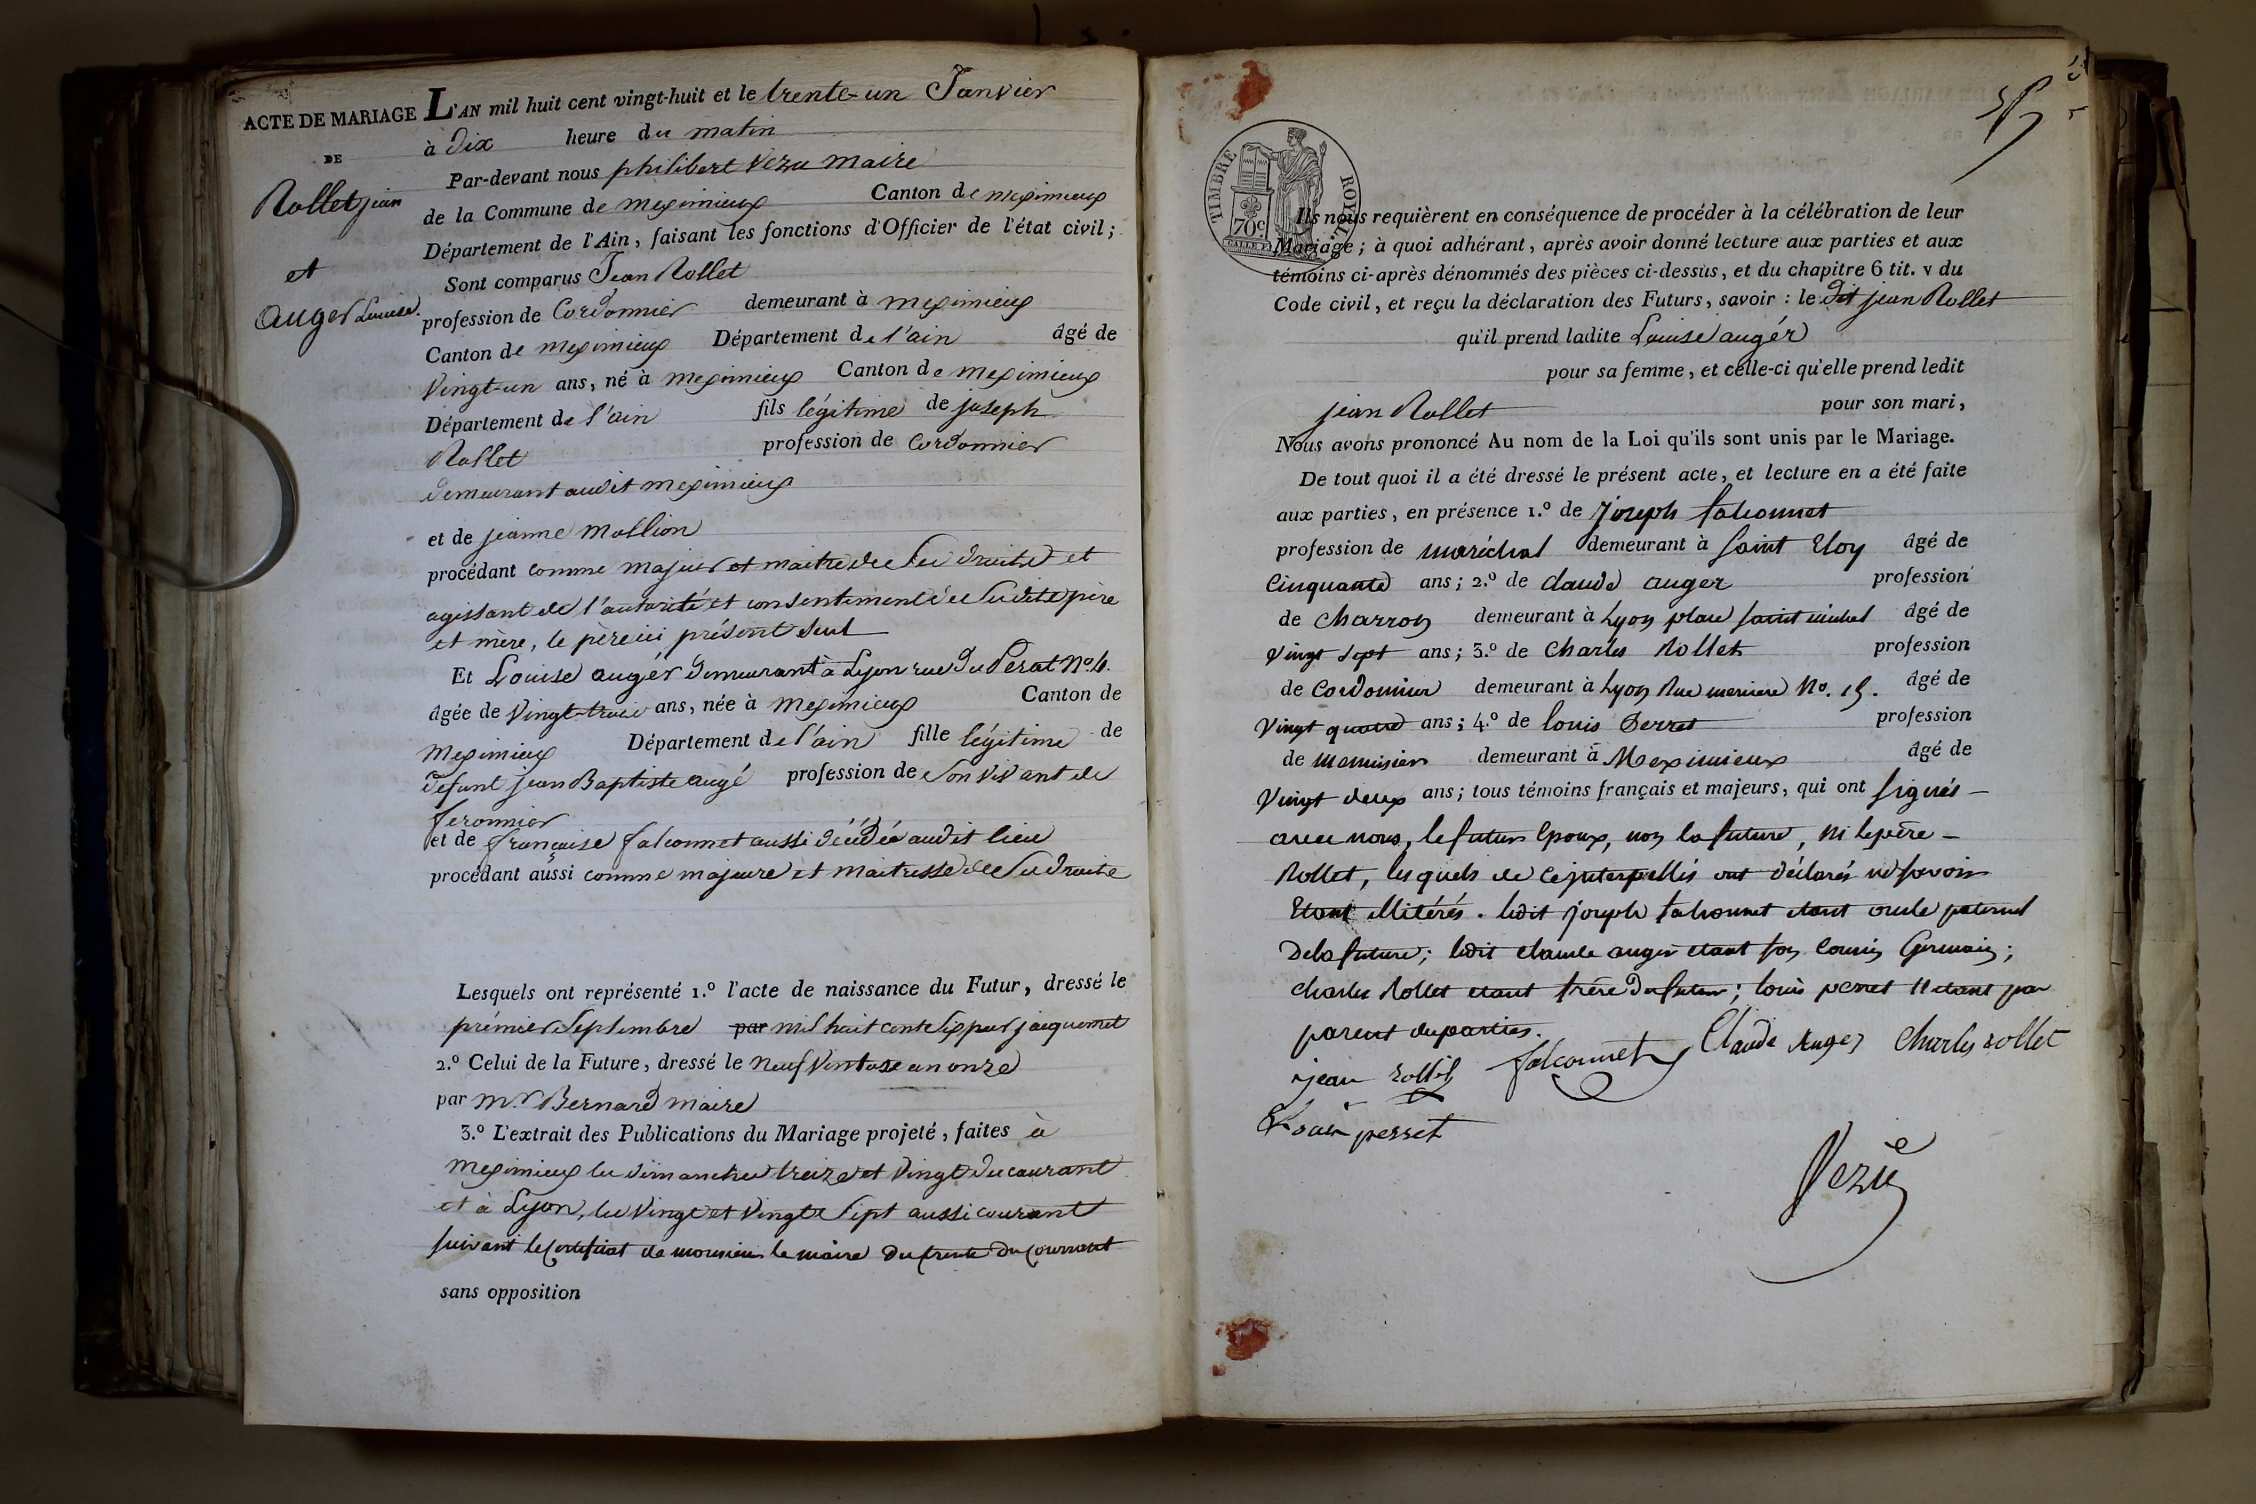 ACTE DE MARIAGE L'AN mil huit cent vingt-huit et le trente-un Janvier
DE
à dix heure du matin
Par-devant nous philibert Vezu maire
Rollet jean
de la Commune de meximieux Canton de meximieux
Département de l'Ain, faisant les fonctions d'Officier de l'état civil;
et
Sont comparus Jean Rollet
auger Louise.
profession de Cordonnier demeurant à meximieux
Canton de meximieux Département de l'ain âgé de
vingt-un ans, né à meximieux Canton de meximieux
Département de l'ain fils légitime de joseph
Rollet profession de Cordonnier
demeurant audit meximieux
et de jeanne mollion
procédant comme majeur et maitre de ses droits et
agissant de l'autorité et consentement de sesdits père
et mère, le père ici présent seul
Et Louise augér demeurant à Lyon rue du Perat No. 6.
âgée de vingt-trois ans, née à meximieux Canton de
meximieux Département de l'ain fille légitime de
defunt jean Baptiste augé profession de son vivant de
feronnier
et de françoise falconnet aussi décédée audit lieu
procédant aussi comme majeure et maitresse de ses droits
Lesquels ont représenté 1.º l'acte de naissance du Futur, dressé le
prémier septembre par mil huit cent six par jacquemet
2.º Celui de la Future, dressé le neuf ventose an onze
par mr. Bernard maire
3.º L'extrait des Publications du Mariage projeté, faites à
meximieux les dimanches treize et vingt du courant
et à Lyon, les vingt et vingt sept aussi courant
suivant le certificat de monsieur le maire du trente du courrant
sans opposition
TIMBRE ROYAL
70c
Ils nous requièrent en conséquence de procéder à la célébration de leur
Mariage; à quoi adhérant, après avoir donné lecture aux parties et aux
témoins ci-après dénommés des pièces ci-dessus, et du chapitre 6 tit. v du
Code civil, et reçu la déclaration des Futurs, savoir : le dit jean Rollet
qu'il prend ladite Louise augér
pour sa femme, et celle-ci qu'elle prend ledit
jean Rollet pour son mari,
Nous avons prononcé Au nom de la Loi qu'ils sont unis par le Mariage.
De tout quoi il a été dressé le présent acte, et lecture en a été faite
aux parties, en présence 1.º de joseph falconnet
profession de maréchal demeurant à Saint Eloy âgé de
Cinquante ans; 2.º de claude auger profession
de Charron demeurant à Lyon place saint michel âgé de
vingt sept ans; 3.º de Charles Rollet profession
de Cordonnier demeurant à Lyon Rue merciere No. 15. âgé de
vingt quatre ans; 4.º de louis perret profession
de menuisier demeurant à Meximieux âgé de
vingt deux ans; tous témoins français et majeurs, qui ont signés
avec nous, le futur Epoux, non la future, ni le père
Rollet, lesquels de ce interpellés ont déclarés ne savoir
Etant illitérés. ledit joseph falconnet etant oncle paternel
de la future; ledit claude auger etant son cousin Germain;
charles Rollet etant frère du futur; louis perret n'étant pas
parent des parties.
jean rollet falconnet Claude Auger Charles rollet
Louis perret
Vezu